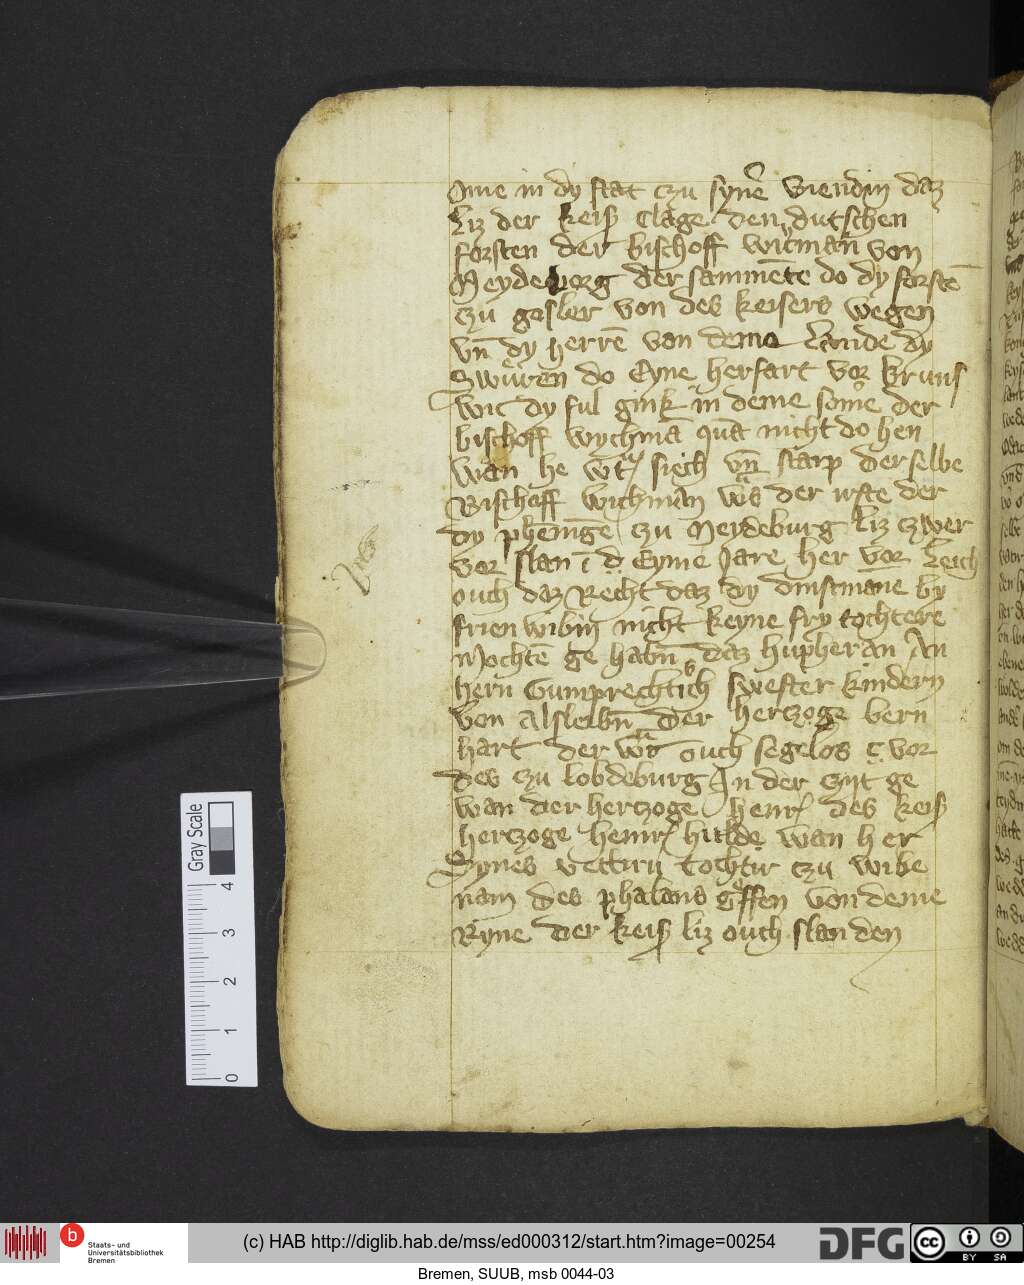 Ime in dy stat czu synē vienden daz
liz der keiß clage den dutschen
forsten der bischoff witman von
Meydeborg der sammente do dy forstē
czu gosler von des keisers wegen
vn̄ dy herrē van deme Lande dy
Swuren do Eyne herfart vor bruns
wic dy ful gink in deme some der
bischoff wychmā quā nicht do hen
wan he wt siech vn̄ starp der selbe
Bischoff wichman was der irste der
dy phēnigē czu Meydeburg liz czwer
vor slan ī d Eyme Jare her vor leich
ouch daz Recht daz dy dinstmane by
frien wibin nicht keyne fry tochtere
Mochtē ge habn̄ daz hup her an An
hern Gumprechtich swester kindern
von alsleibn̄ der hertzoge bern
hart der wt ouch segelos c vor
des czu lobdeburg In der czyt ge
wan der hertzoge henr des keiß
hertzoge heinr hulde wan her
Synes vettirn tochtir czu wibe
nam des phalans gffen von deme
Ryne der keiß liz ouch slan den
Gray Scale
4
3
2
1
0
b
Staats- und
Universitätsbibliothek
Bremen
(c) HAB http://diglib.hab.de/mss/ed000312/start.htm?image=00254
DFG
cc
BY SA
Bremen, SUUB, msb 0044-03